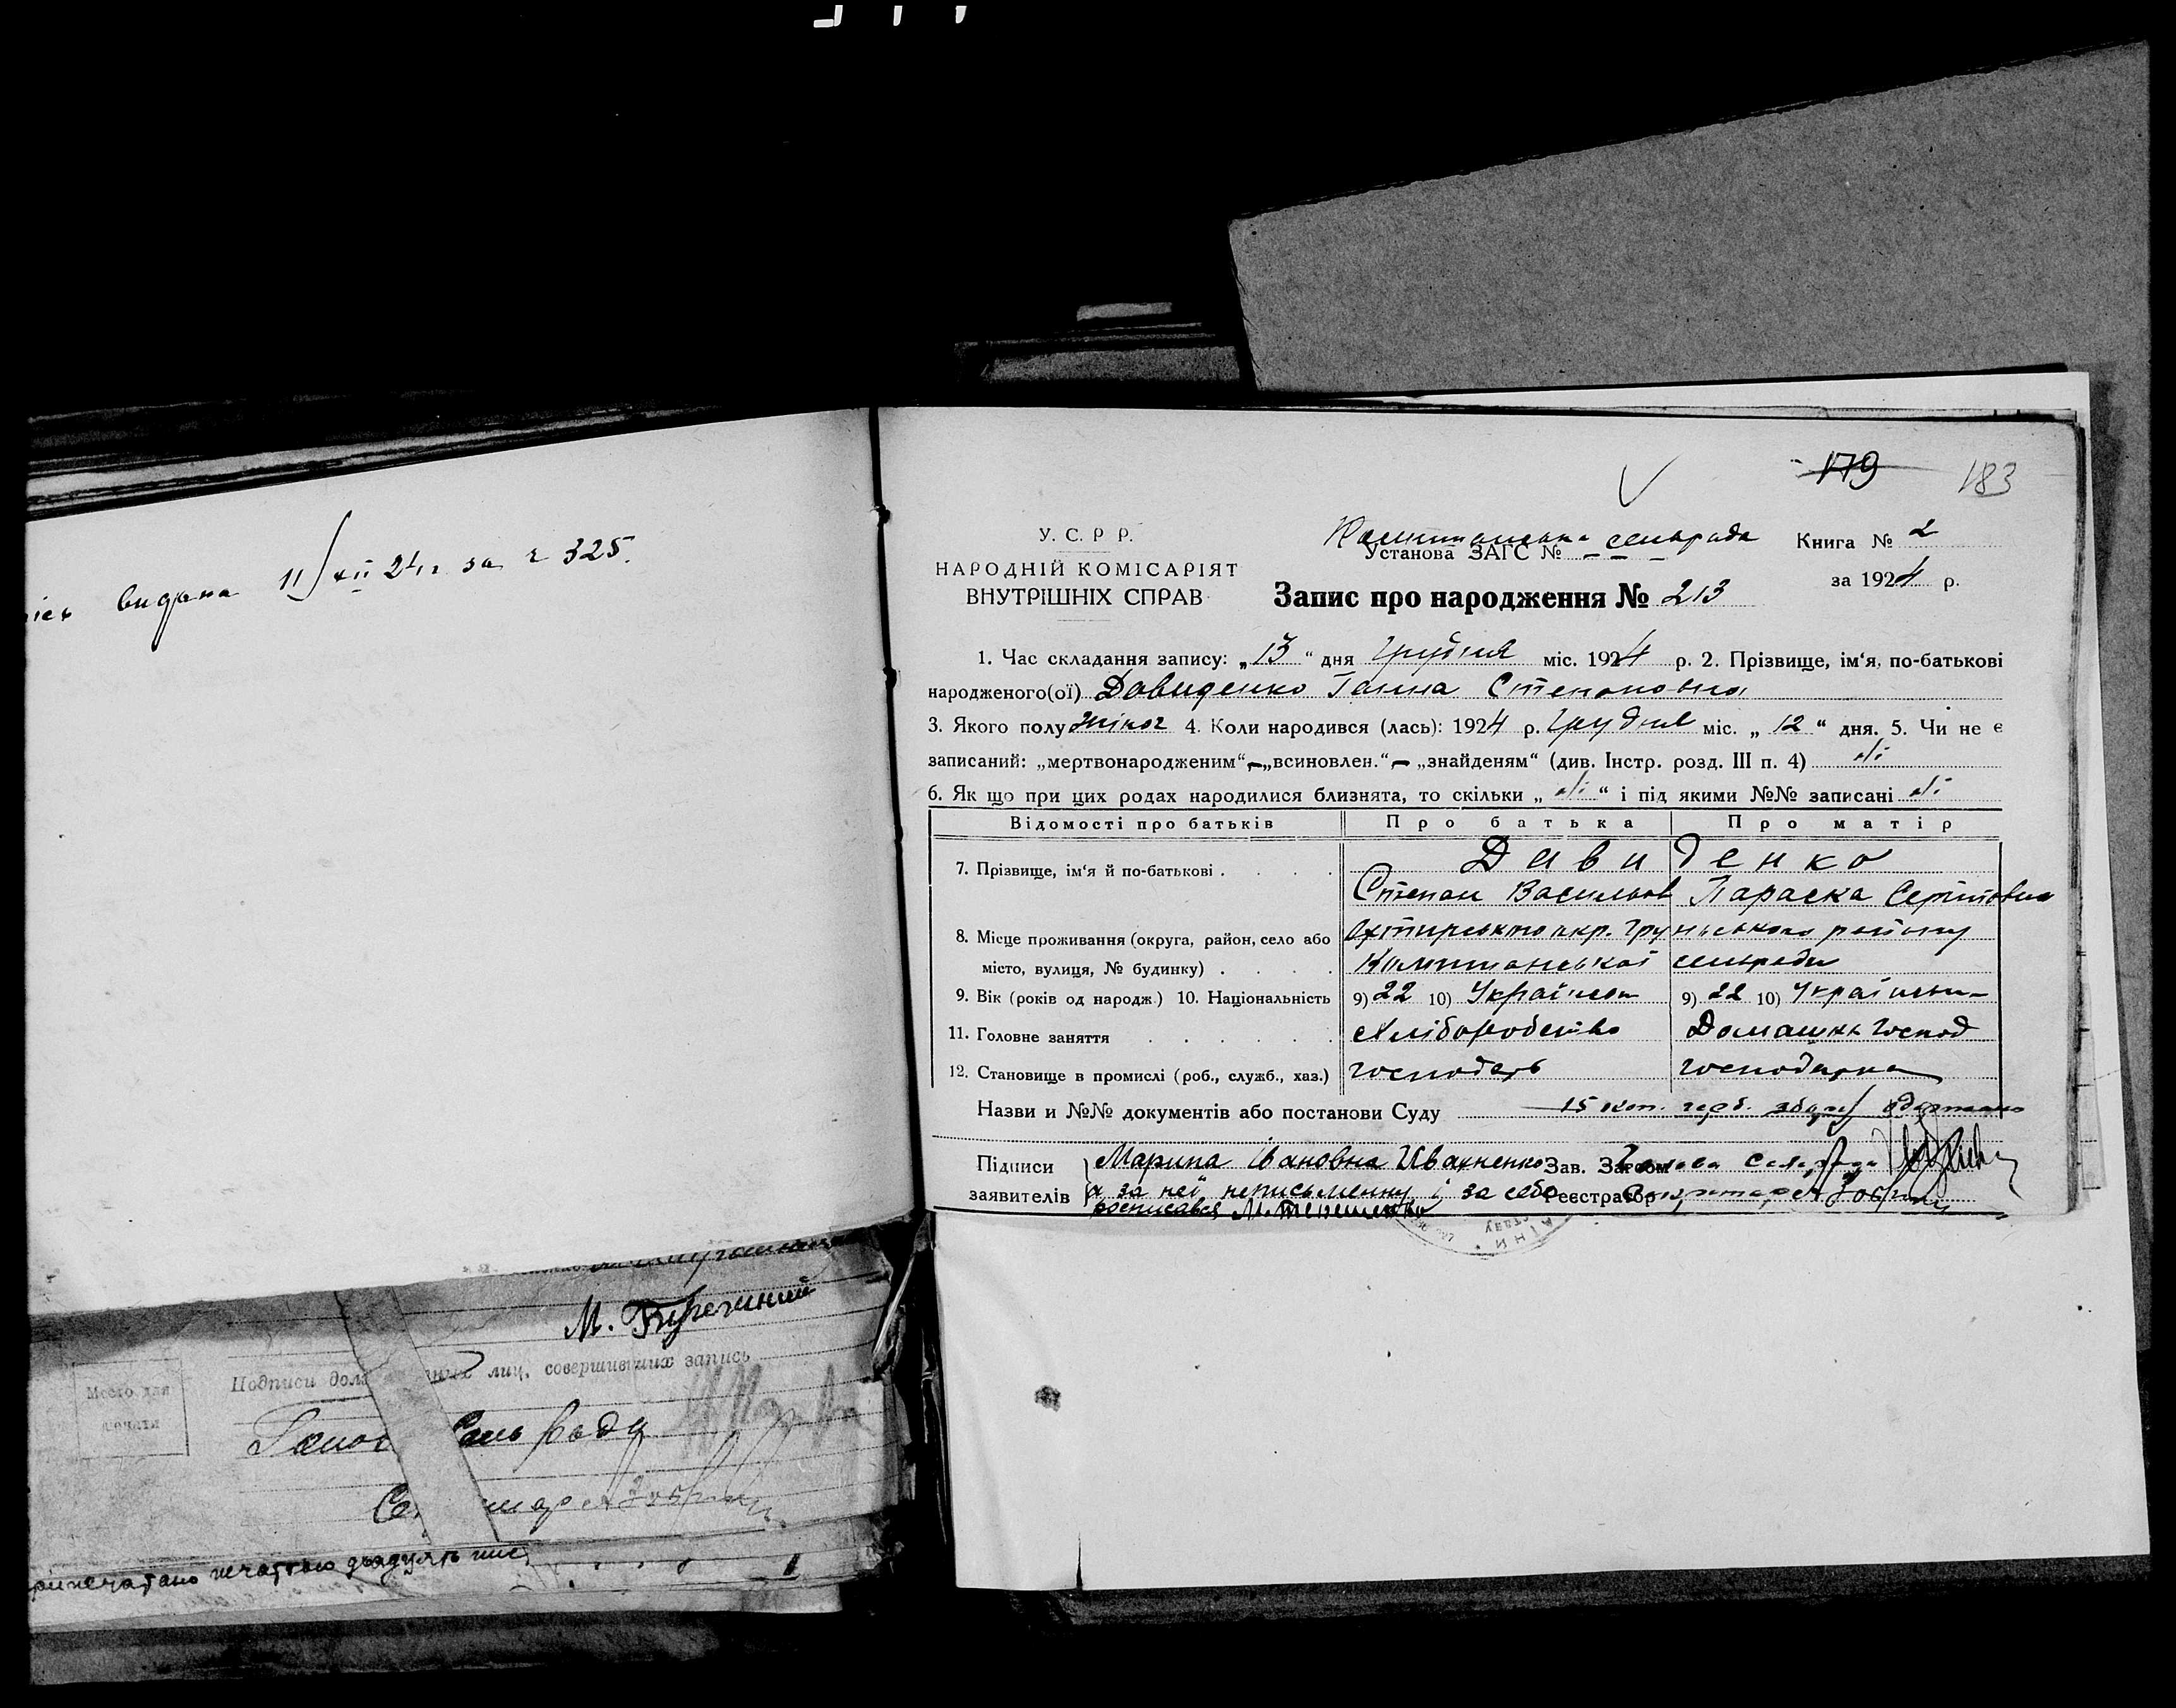 видана 11/XII 24 г за г 325.
179 183
У. С. Р Р.
НАРОДНІЙ КОМІСАРІЯТ
ВНУТРІШНІХ СПРАВ
сельрада
Установа ЗАГС №
Книга № 2
за 1924 р.
Запис про народження № 213
1. Час складання запису: „13“ дня Грудня міс. 1924 р. 2. Прізвище, ім‘я, по-батькові
народженого(ої) Давиденко Ганна Степановна
3. Якого полу жіноч 4. Коли народився (лась): 1924 р. Грудня міс. „ 12 “ дня. 5. Чи не є
записаний: „мертвонародженим“,—„всиновлен.“— „знайденям“ (див. Інстр. розд. III п. 4) ні
6. Як що при цих родах народилися близнята, то скільки „ ні “ і під якими №№ записані ні
Відомості про батьків Про батька Про матір
7. Прізвище, ім‘я й по-батькові . . . . Давиденко
Степан Васильов Параска
8. Місце проживання (округа, район, село або Охтирського окр. Груньського району
місто, вулиця, № будинку) . . . . сельради
9. Вік (років од народж.) 10. Національність 9) 22 10) Українец 9) 22 10) Українка
11. Головне заняття . . . . . . Хліборобство Домашнь господ
12. Становище в промислі (роб., служб., хаз.) господарь господарка
Назви и №№ документів або постанови Суду 15 коп. герб. збору одержано
Підписи Марина Івановна Ивахненко Зав. Загсом Голова Сельради
заявителів а за неї неписьменну і за себе Реєстратор Секретарь
росписався М. Терешенко
М.
Место для
печати
Подписи лиц, совершивших запись
Голов Сель Ради
печаттою